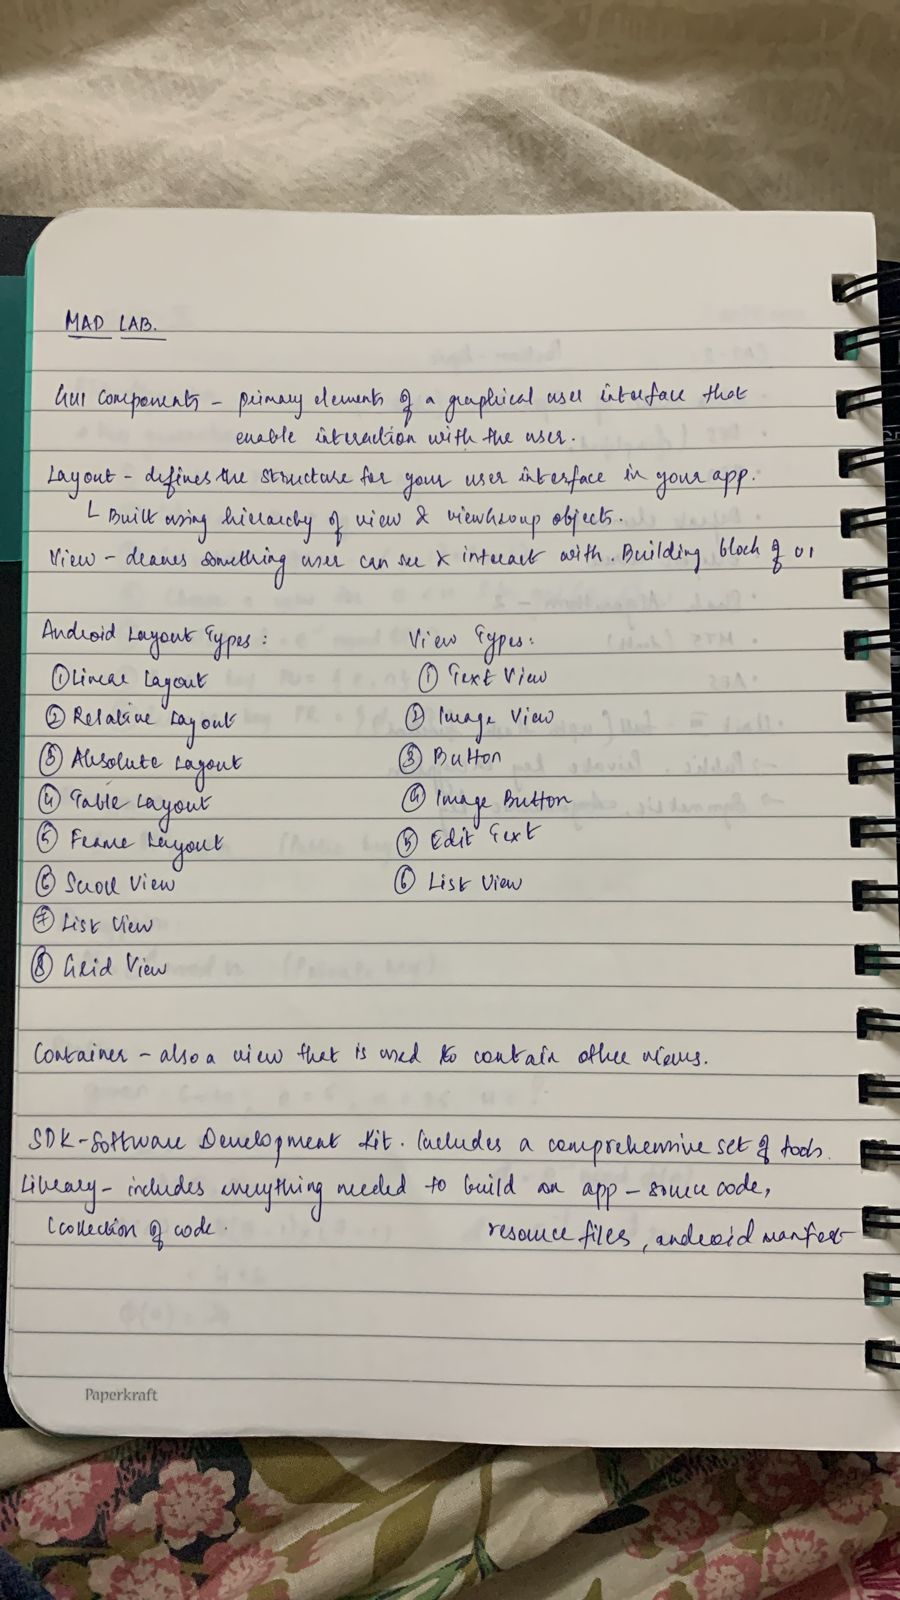 MAD LAB.
GUI Components - primary elements of a graphical user interface that
enable interaction with the user.
Layout - defines the structure for your user interface in your app.
└ Built using hierarchy of view & viewGroup objects.
View - draws something user can see & interact with. Building block of UI
Android Layout Types:
① Linear Layout
② Relative Layout
③ Absolute Layout
④ Table Layout
⑤ Frame Layout
⑥ Scroll View
⑦ List View
⑧ Grid View
View Types:
① Text View
② Image View
③ Button
④ Image Button
⑤ Edit Text
⑥ List View
Container - also a view that is used to contain other views.
SDK - Software Development Kit. Includes a comprehensive set of tools.
Library - includes everything needed to build an app - source code,
(collection of code. resource files, android manifest
Paperkraft